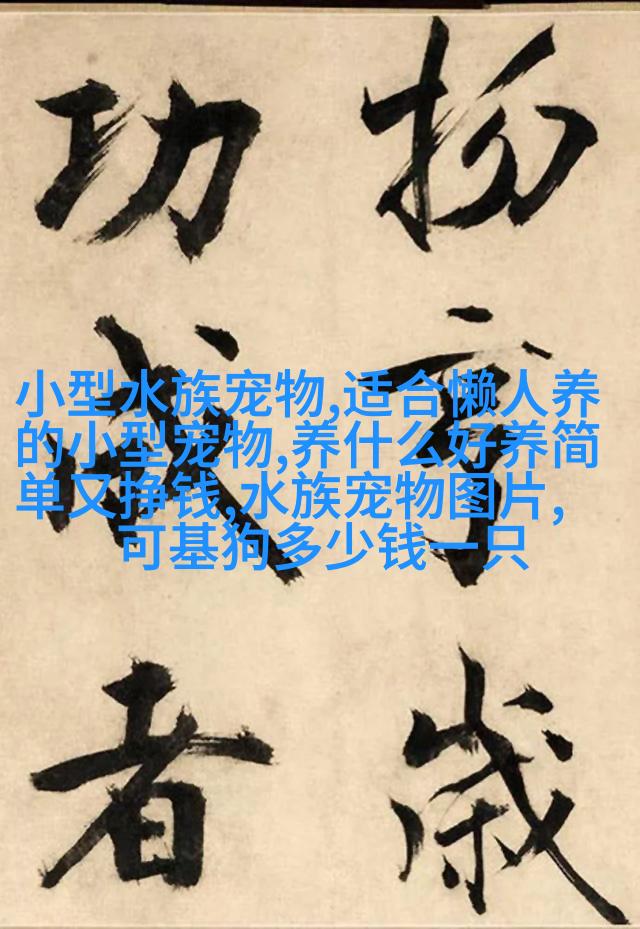 小型水族宠物,适合懒人养
的小型宠物,养什么好养简
单又挣钱,水族宠物图片,
可基狗多少钱一只
歲
功成者